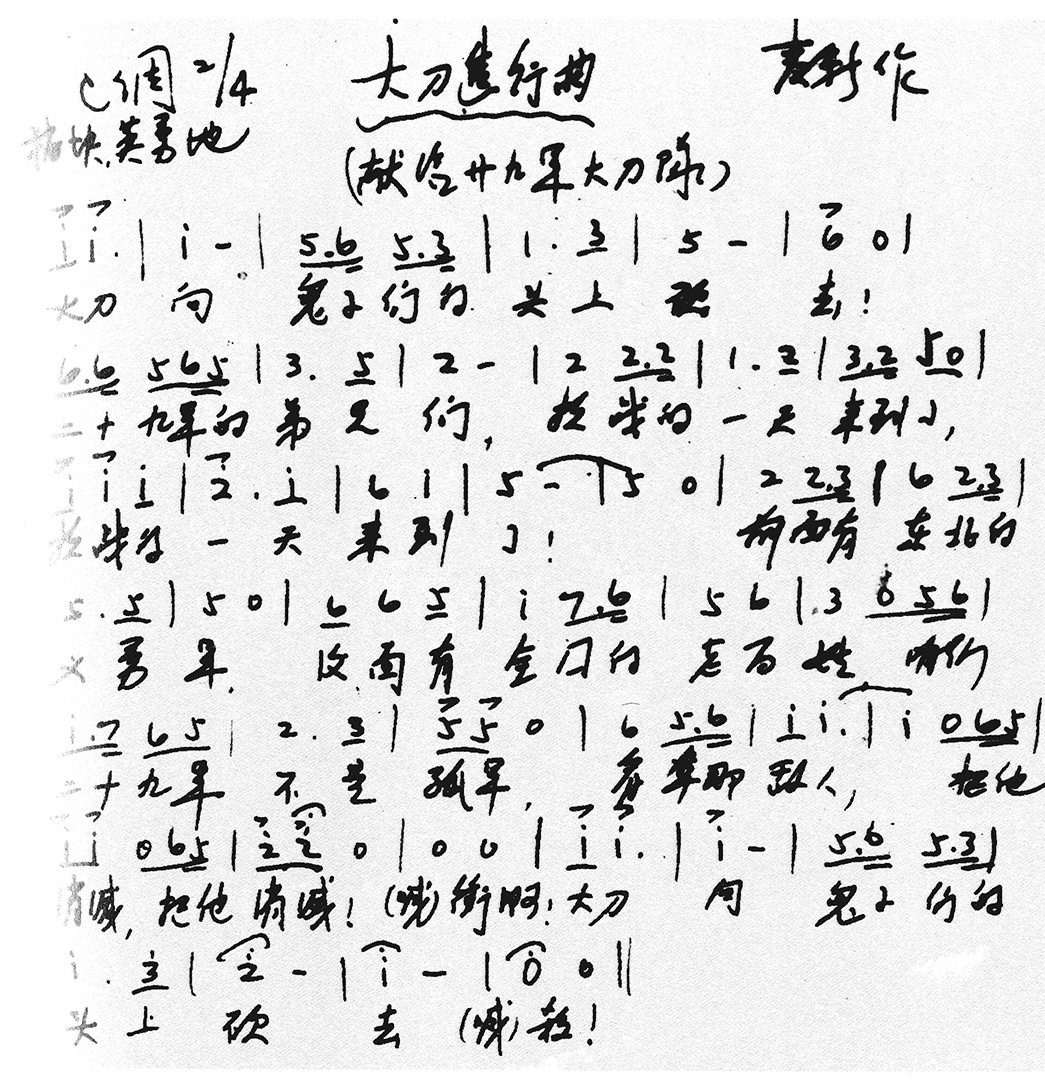 C调 2/4 大刀进行曲 麦新作
稍快、英勇地
(献给廿九军大刀队)
i i. | i - | 5.6 5.3 | 1. 3 | 5 - | 6 0 |
大刀 向 鬼子们的 头上 砍 去!
6.6 565 | 3. 5 | 2 - | 2 2.2 | 1. 2 | 3.2 50 |
二十九军的弟兄们, 抗战的一天来到了,
i i i | 2. i | 6 i | 5 - | 5 0 | 2 2.3 | 6 2.3 |
抗战的一天来到了! 前面有东北的
5. 5 | 5 0 | 6 6 5 | i 7.6 | 5 6 | 3 0 56 |
义勇军, 后面有全国的老百姓, 咱们
i.7 65 | 2. 3 | 55 0 | 6 5.6 | i i. | i 065 |
二十九军不是孤军, 看准那敌人, 把他
i i 065 | 2 2 0 | 0 0 | i i. | i - | 5.6 5.3 |
消灭, 把他消灭! (喊)冲啊! 大刀 向 鬼子们的
i. 3 | 2 - | i - | 0 0 ||
头上 砍 去 (喊)杀!